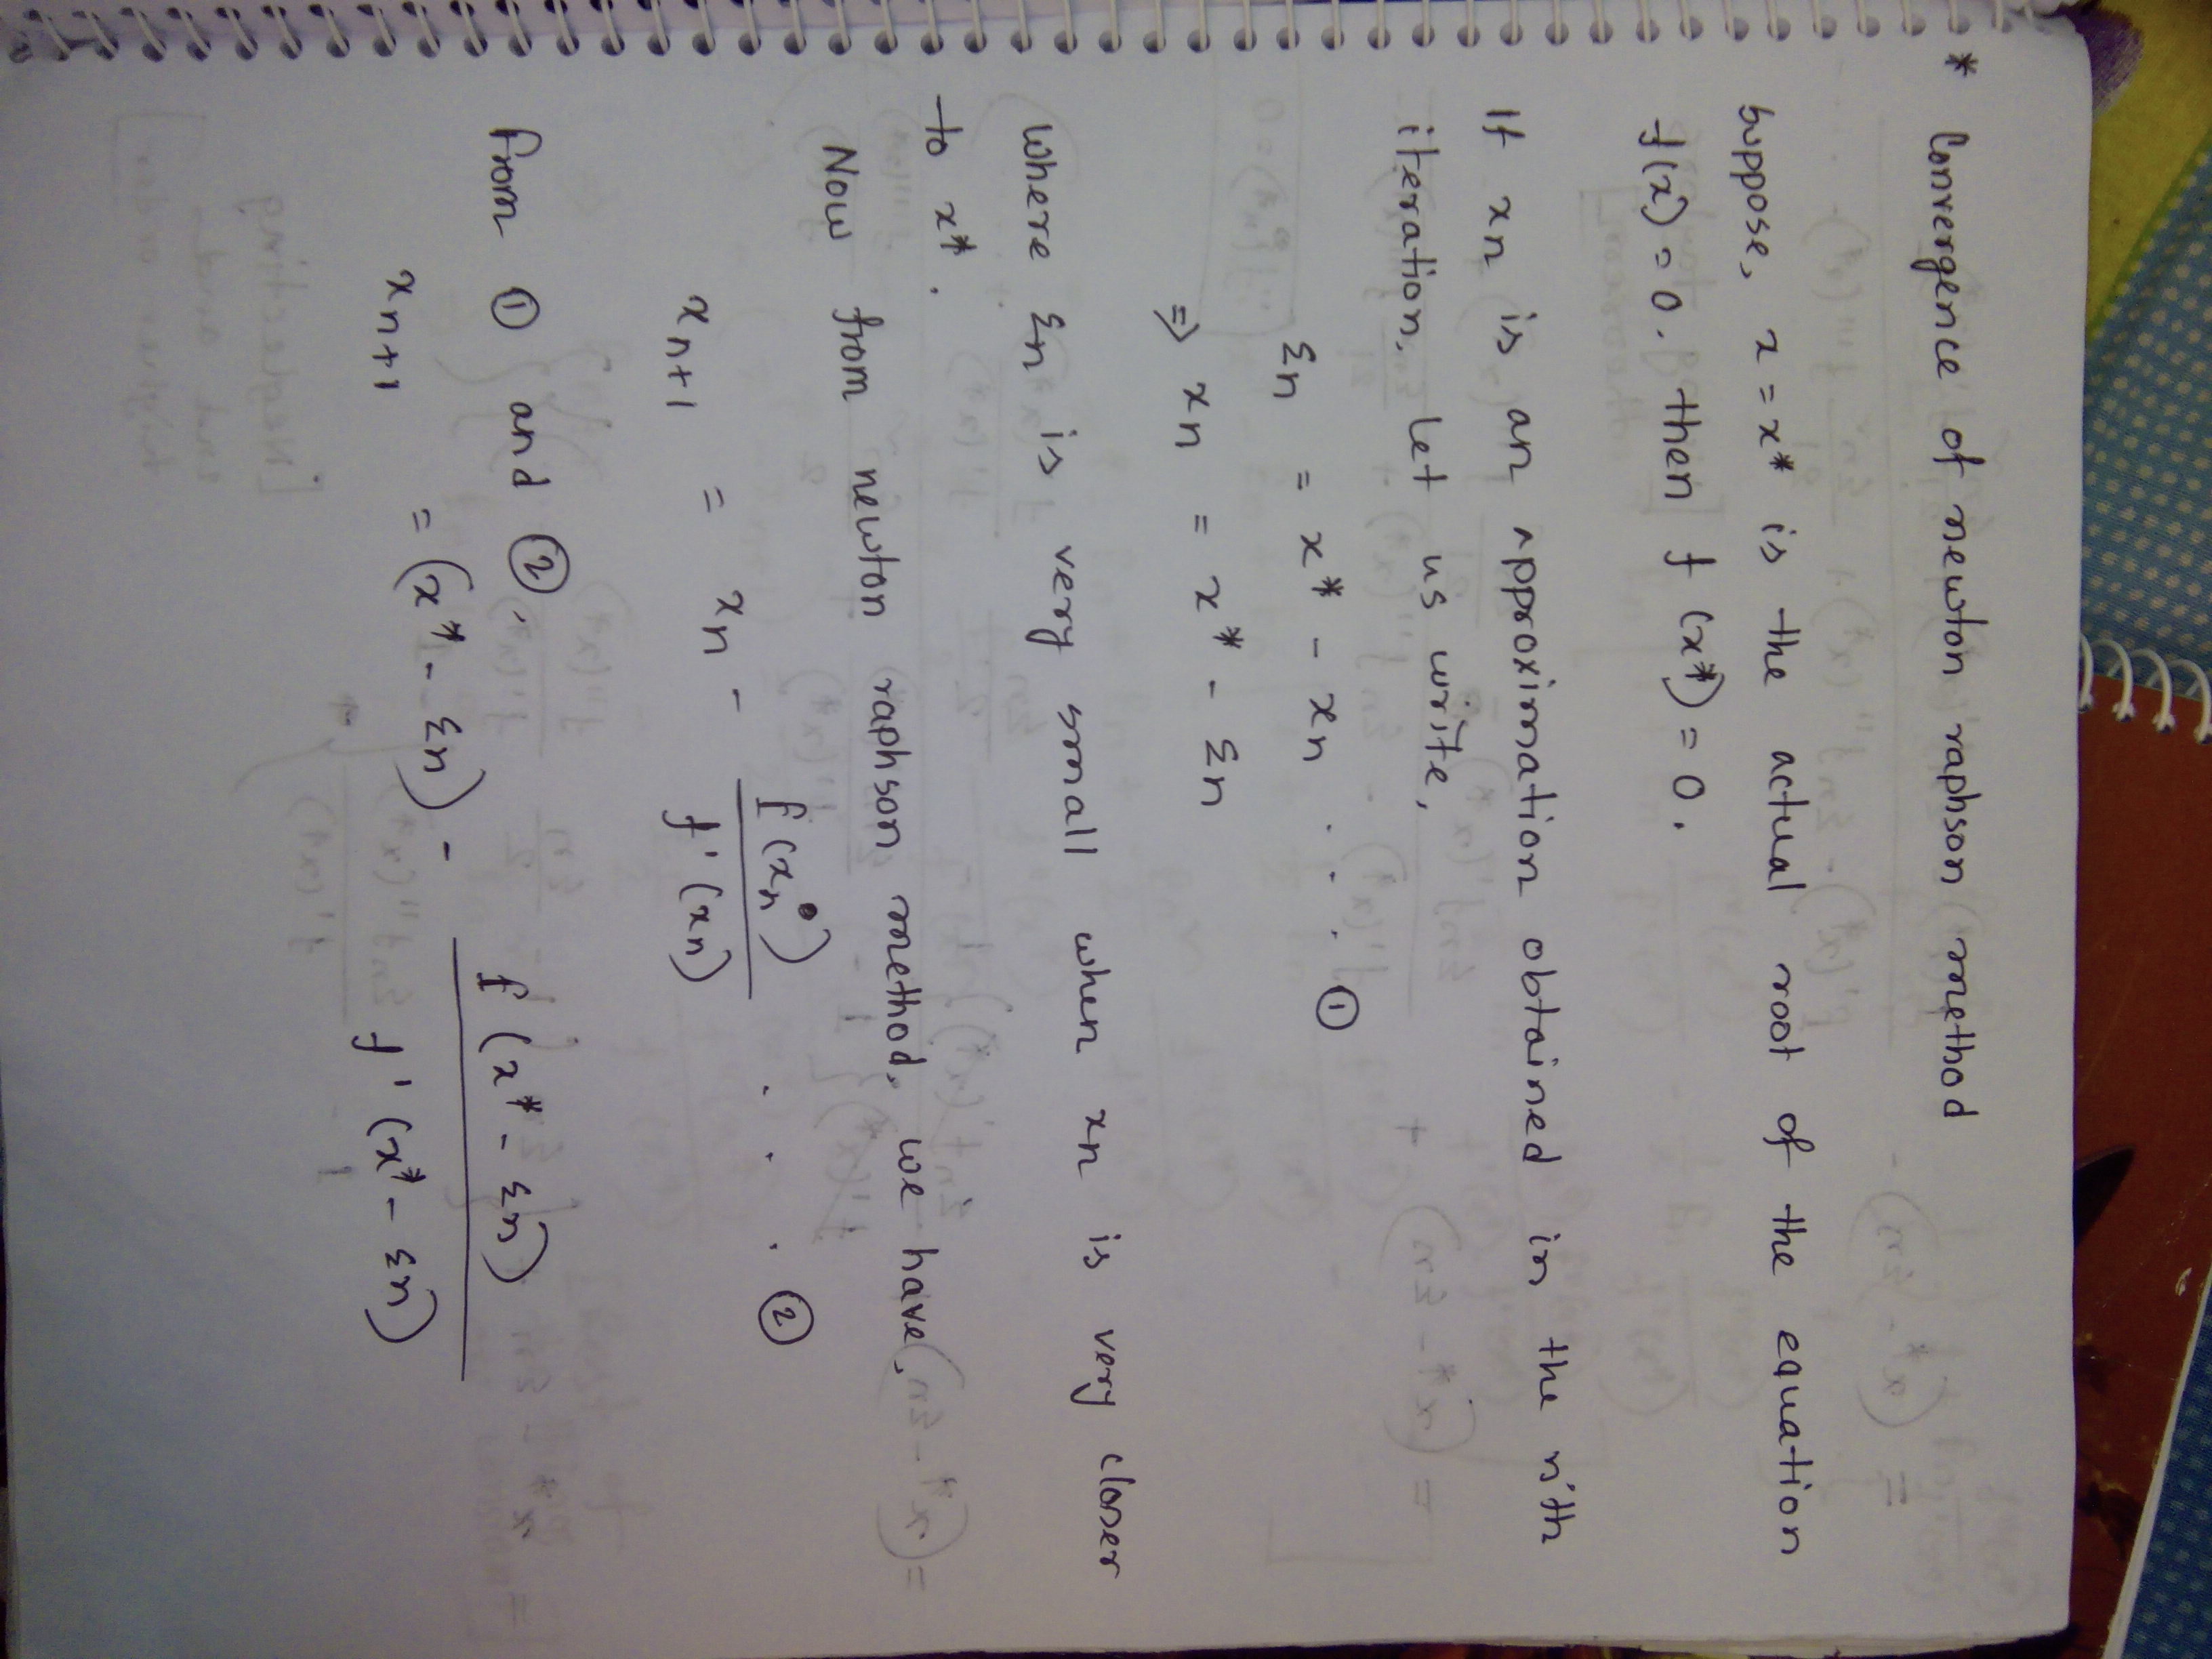 * Convergence of newton raphson method
Suppose, x = x* is the actual root of the equation
f(x) = 0. then f (x*) = 0.
If xn is an approximation obtained in the n'th
iteration. Let us write,
Ɛn = x* - xn . . . ①
=> xn = x* - Ɛn
Where Ɛn is very small when xn is very closer
to x*.
Now from newton raphson method, we have,
x n+1 = xn - f(xn) / f'(xn) . . . ②
From ① and ②,
x n+1 = (x* - Ɛn) - f (x* - Ɛn) / f' (x* - Ɛn)